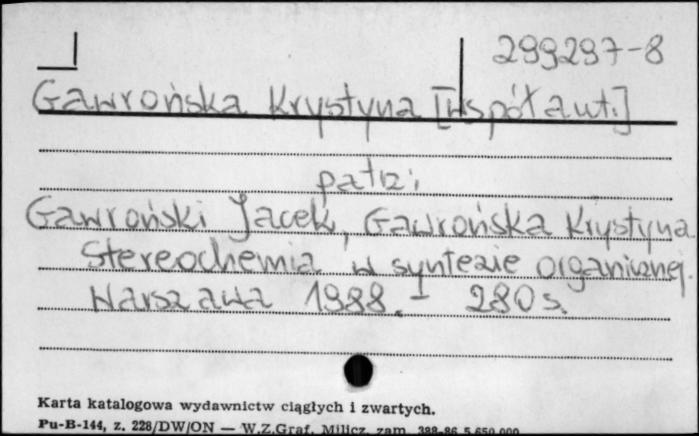 299297-8
Gawrońska Krystyna [Współaut.]
patrz:
Gawroński Jacek, Gawrońska Krystyna
Stereochemia w syntezie organicznej.
Warszawa 1988. - 280 s.
Karta katalogowa wydawnictw ciągłych i zwartych.
Pu-B-144, z. 228/DW/ON — W.Z.Graf. Milicz, zam. 388-86 5.650.000